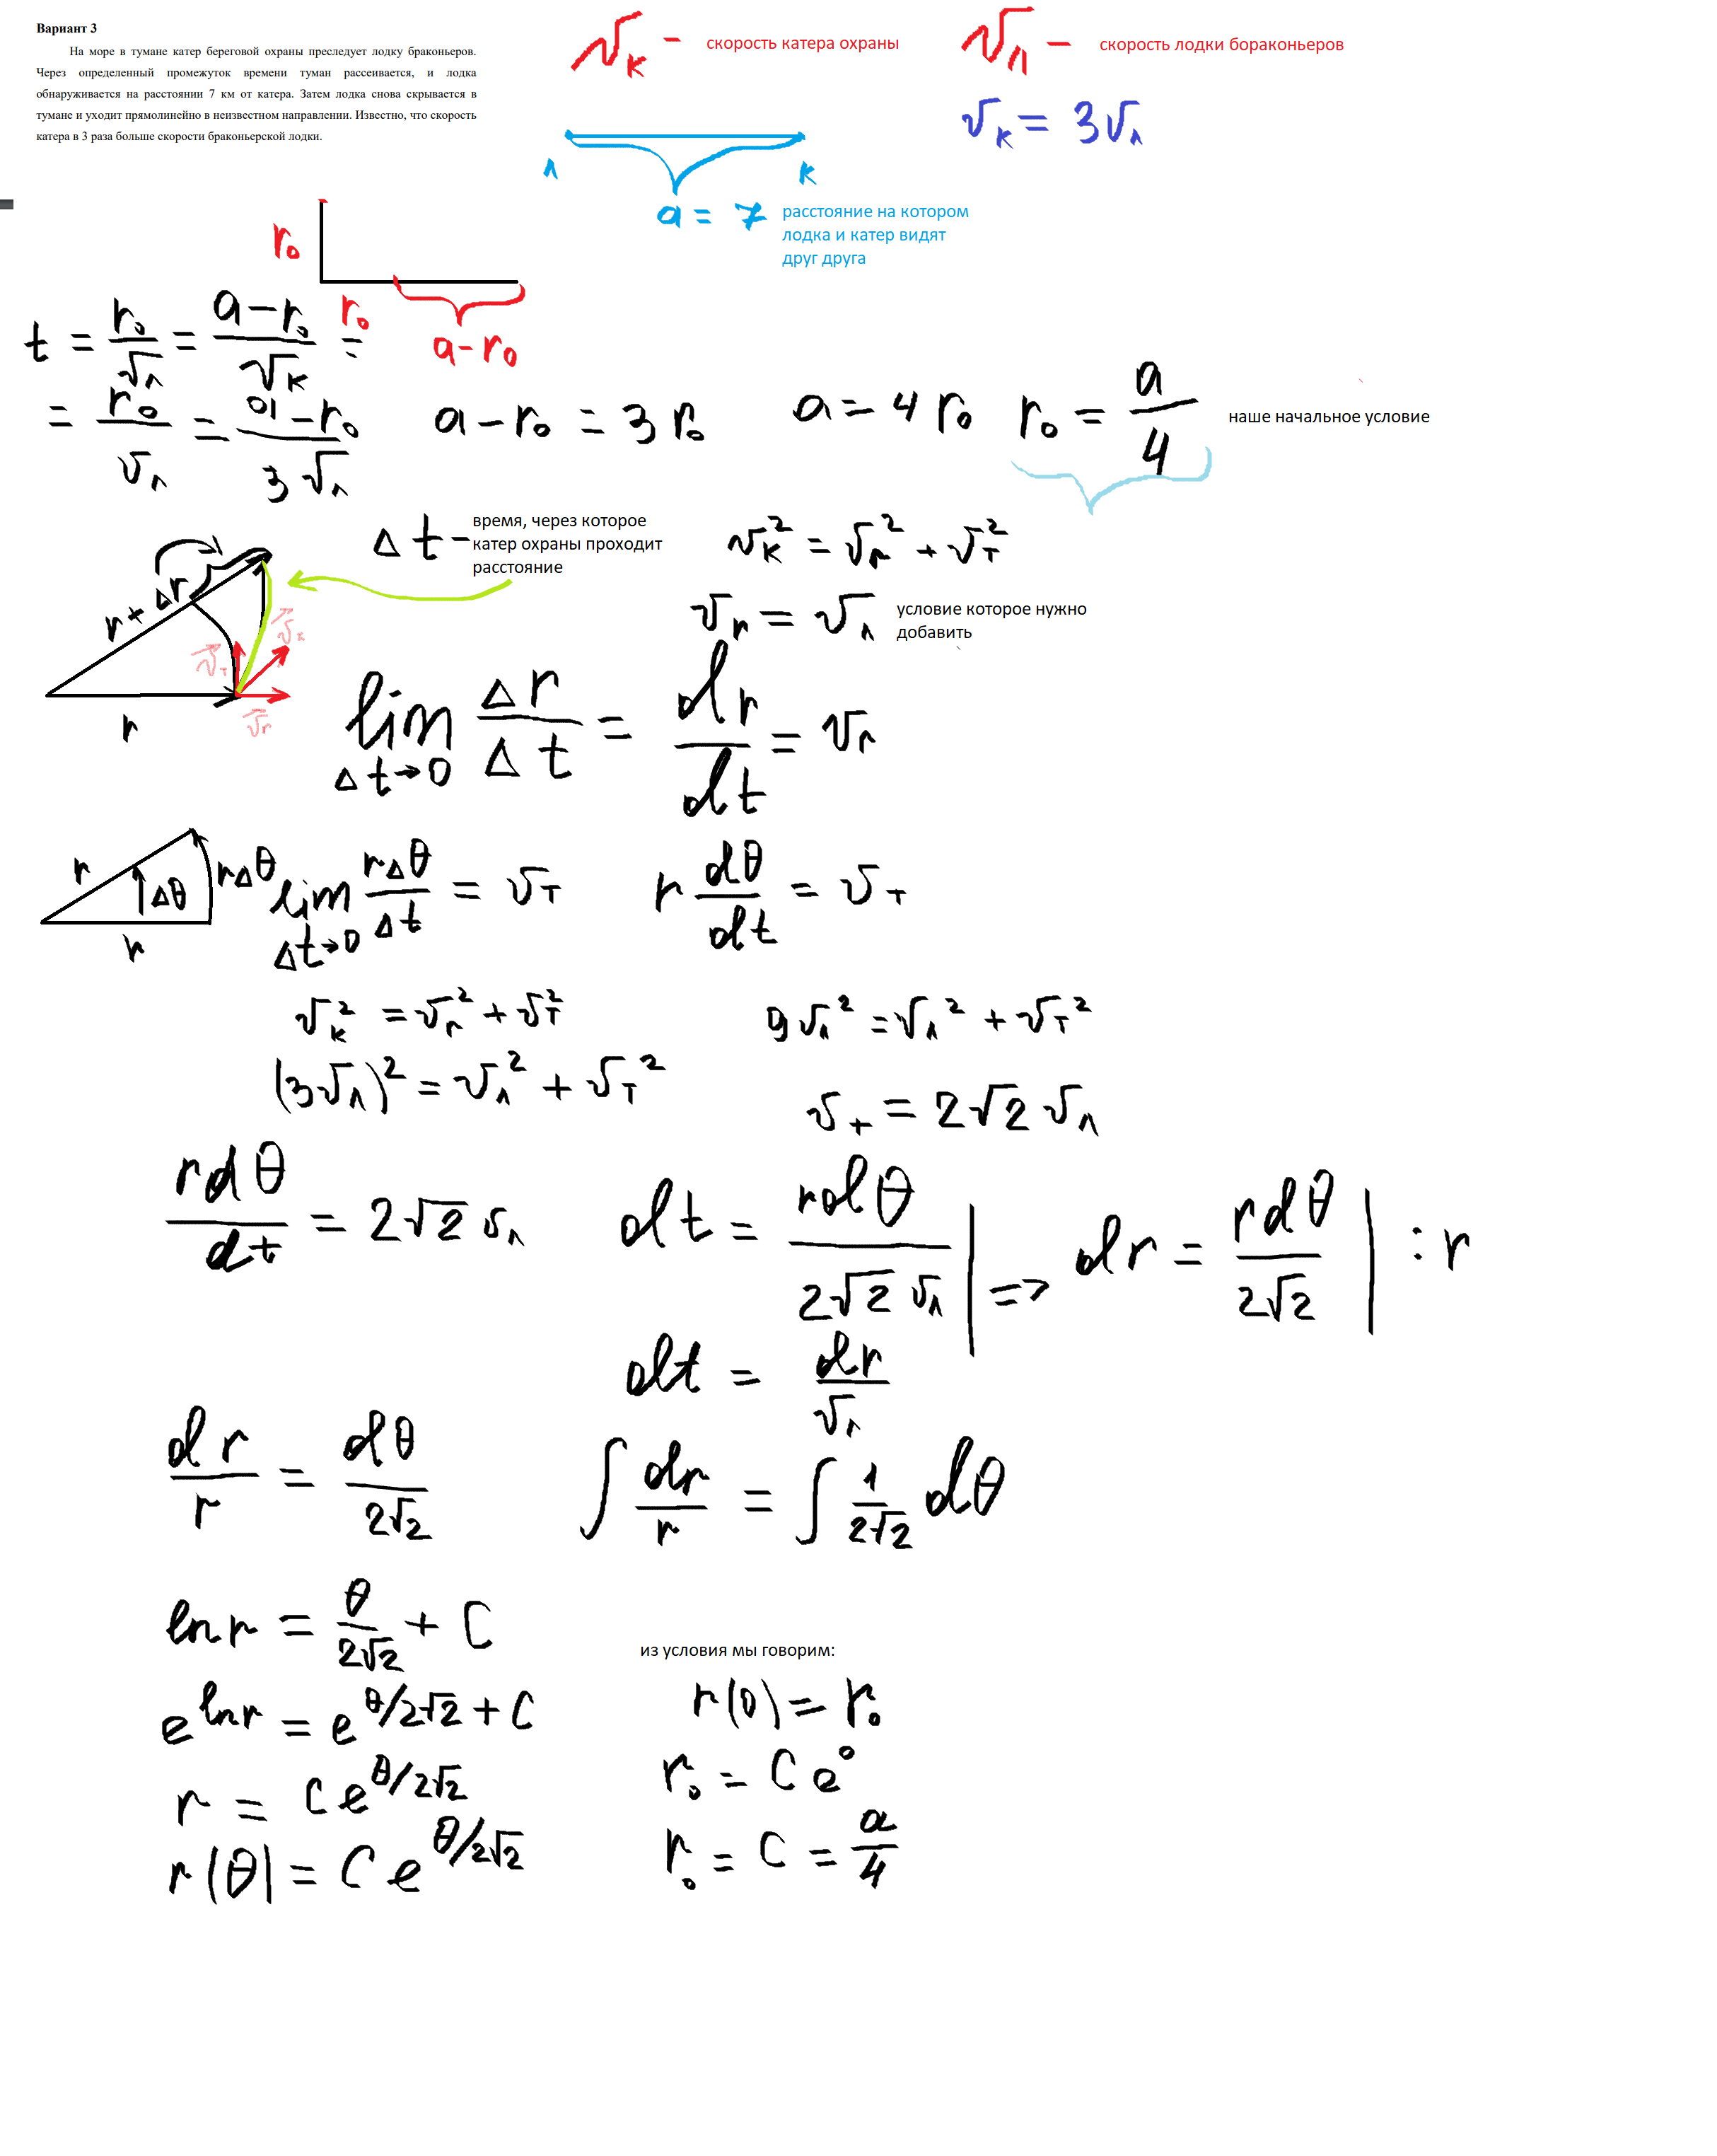 Вариант 3
На море в тумане катер береговой охраны преследует лодку браконьеров.
Через определенный промежуток времени туман рассеивается, и лодка
обнаруживается на расстоянии 7 км от катера. Затем лодка снова скрывается в
тумане и уходит прямолинейно в неизвестном направлении. Известно, что скорость
катера в 3 раза больше скорости браконьерской лодки.
v_к - скорость катера охраны
v_л - скорость лодки бораконьеров
v_к = 3v_л
л к
a = 7 расстояние на котором
лодка и катер видят
друг друга
r₀
r₀
a-r₀
t = r₀/v_л = (a-r₀)/v_к =
= r₀/v_л = (a-r₀)/(3v_л) a-r₀ = 3r₀ a = 4r₀ r₀ = a/4 наше начальное условие
Δt - время, через которое
катер охраны проходит
расстояние
v_к² = v_r² + v_т²
v_r = v_л условие которое нужно
добавить
r+Δr
v_т
v_к
v_r
r
lim Δt→0 Δr/Δt = dr/dt = v_r
r Δθ rΔθ
r
lim Δt→0 rΔθ/Δt = v_т r dθ/dt = v_т
v_к² = v_r² + v_т² 9v_л² = v_л² + v_т²
(3v_л)² = v_л² + v_т² v_т = 2√2 v_л
rdθ/dt = 2√2 v_л dt = rdθ/(2√2 v_л) | => dr = rdθ/(2√2) | : r
dt = dr/v_л
dr/r = dθ/(2√2) ∫ dr/r = ∫ 1/(2√2) dθ
ln r = θ/(2√2) + C
из условия мы говорим:
e^(ln r) = e^(θ/2√2 + C) r(0) = r₀
r = Ce^(θ/2√2) r₀ = Ce⁰
r(θ) = Ce^(θ/2√2) r₀ = C = a/4